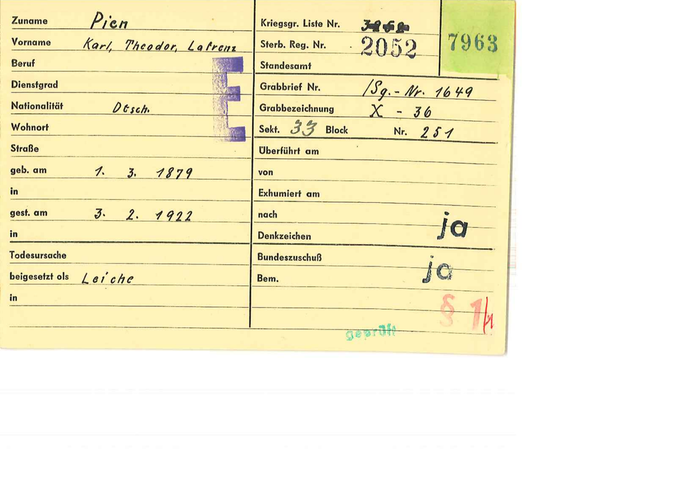 Zuname Pien
Vorname Karl, Theodor, Lafrenz
Beruf
Dienstgrad
Nationalität Dtsch.
Wohnort
Straße
geb. am 1. 3. 1879
in
gest. am 3. 2. 1922
in
Todesursache
beigesetzt als Leiche
in
E
Kriegsgr. Liste Nr.
Sterb. Reg. Nr. 2052
Standesamt
7963
Grabbrief Nr. /Sg.-Nr. 1649
Grabbezeichnung X - 36
Sekt. 33 Block Nr. 251
Überführt am
von
Exhumiert am
nach
Denkzeichen ja
Bundeszuschuß
Bem. ja
§ 1
geprüft